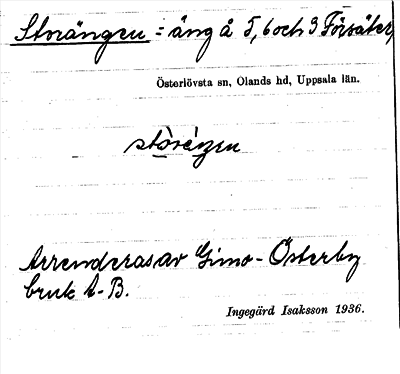 Storängen = äng å 5, 6 och 3 Försäter,
Österlövsta sn, Olands hd, Uppsala län.
Arrenderas av Gimo-Österby
bruk A-B.
Ingegärd Isaksson 1936.